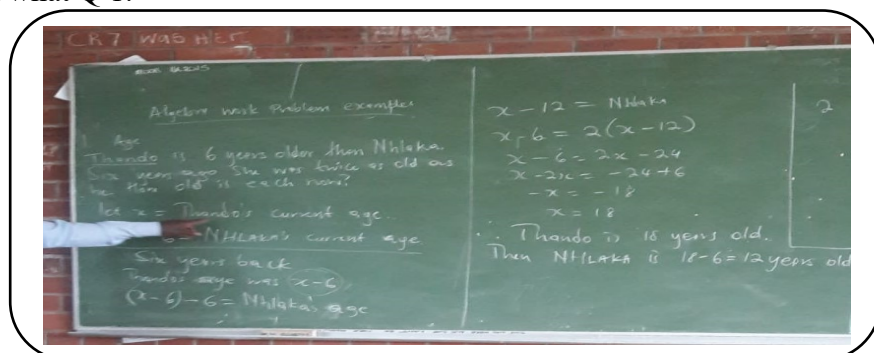 CR7 WAS HER
Algebra work Problem examples
1. Age
Thando is 6 years older than Nhlaka.
Six years ago she was twice as old as
he. How old is each now?
let x = Thando's current age
6 = NHLAKA's current age
Six years back
Thando's age was x-6
(x-6)-6 = Nhlaka's age
x-12 = Nhlaka
x-6 = 2(x-12)
x-6 = 2x-24
x-2x = -24+6
-x = -18
x = 18
∴ Thando is 18 years old.
Then NHLAKA is 18-6=12 years old
2